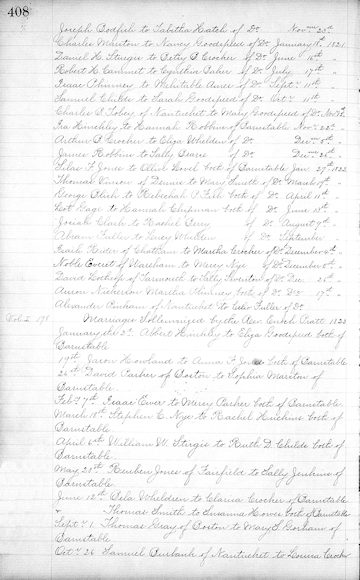 408
Joseph Bodfish to Tabitha Hatch of Do Novr 25th
Charles Marston to Nancy Goodspeed of Do January 1st 1821
Daniel H. Sturgis to Betsy P. Crocker of Do June 16th
Robert H. Cammet to Cynthia Baker of Do July 17th
Isaac Phinney to Mehitible Ames of Do Sept. 11th
Samuel Childs to Sarah Goodspeed of Do Octr 11th
Charles C. Tobey of Nantucket to Mary Goodspeed of Do Nov.
Ira Hinckley to Hannah Robbins of Barnstable Novr 22d
Arthur B. Crocker to Eliza Whelden of Do Decr
James Robbins to Sally of Do Decr
Silas F. Jones to Lovel both of Barnstable Jan 27th 1822
Thomas of Dennis to Mary Smith of Do March
George Blish to Rebekah S. Fish both of Do April 11th
Lot Gage to Hannah Chipman both of Do June
Josiah Clark to Rachel Percy of Do August 9th
Abram Fuller to Lucy Whelden of Do September
Ryder of Chatham to Martha Crocker of Do December 6th
Noble Everit of Wareham to Mercy Nye of Do December
David Lothrop of Yarmouth to Sally Thornton of Do Dec.
Anson Nickerson Martha Childs both of Do Do 19th
Alexander Bunham of Nantucket to Ester Fuller of Do
Marriages Sollemnized by the Rev. Enoch Pratt 1822
January the 3d Albert Hinckley to Eliza Goodspeed both of
Barnstable
19th Jason Howland to Anna F. both of Barnstable
26th David Parker of Boston to Sophia Marston of
Barnstable.
Feby 7th Isaac Ewer to Mercy Parker both of Barnstable.
March 18th Stephen C. Nye to Rachel Hinckley both of
Barnstable
April 6th William W. Sturgis to Ruth D. Childs both of
Barnstable.
May 25th Reuben Jones of Fairfield to Sally Jenkins of
Barnstable.
June 12th Bela Wheldren to Clarissa Crocker of Barnstable
Thomas Smith to Susanna Howes both of Barnstable
Sept. 1 Thomas Gray of Boston to Mary S. Gorham of
Barnstable
Oct. 26 Samuel Burbank of Nantucket to Louisa Crocker